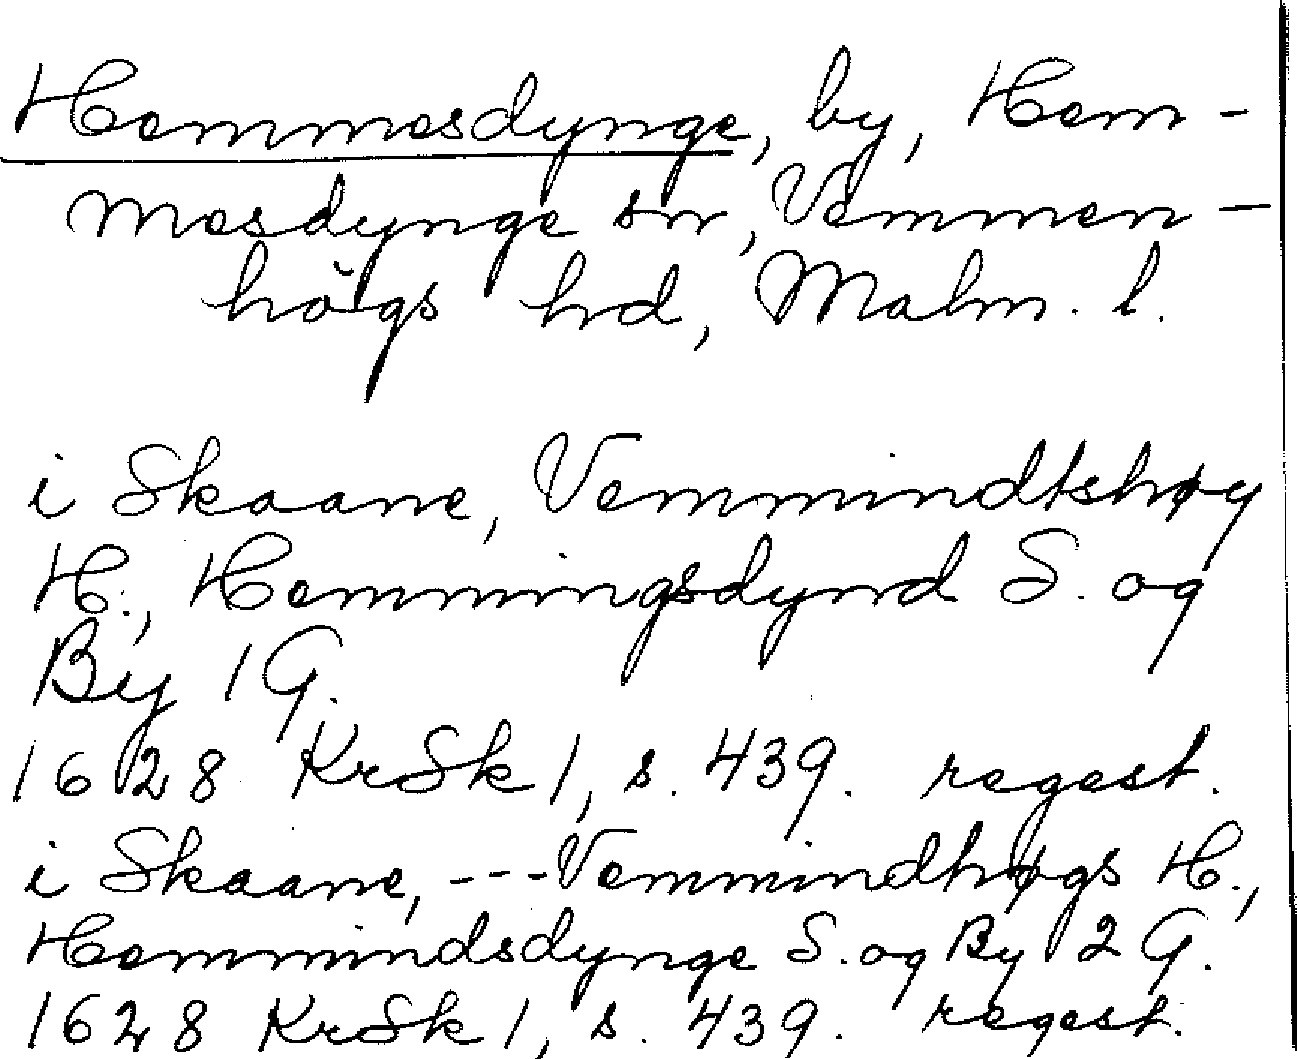 Hemmesdynge, by, Hem-
mesdynge sn, Vemmen-
högs hd, Malm. l.
i Skaane, Vemmindtshøy
H., Hemmingsdynd S. og
By 1 G.
1628 KrSk 1, s. 439. regest.
i Skaane, --- Vemmindhøgs H.,
Hemmindsdynge S. og By 2 G.
1628 KrSk 1, s. 439. regest.